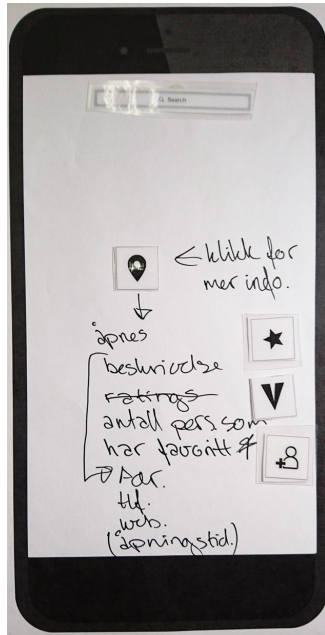 Search
← klikk for
mer info.
åpnes
beskrivelse
ratings
antall pers som
har favoritt
Adr.
tlf.
web.
(åpningstid.)